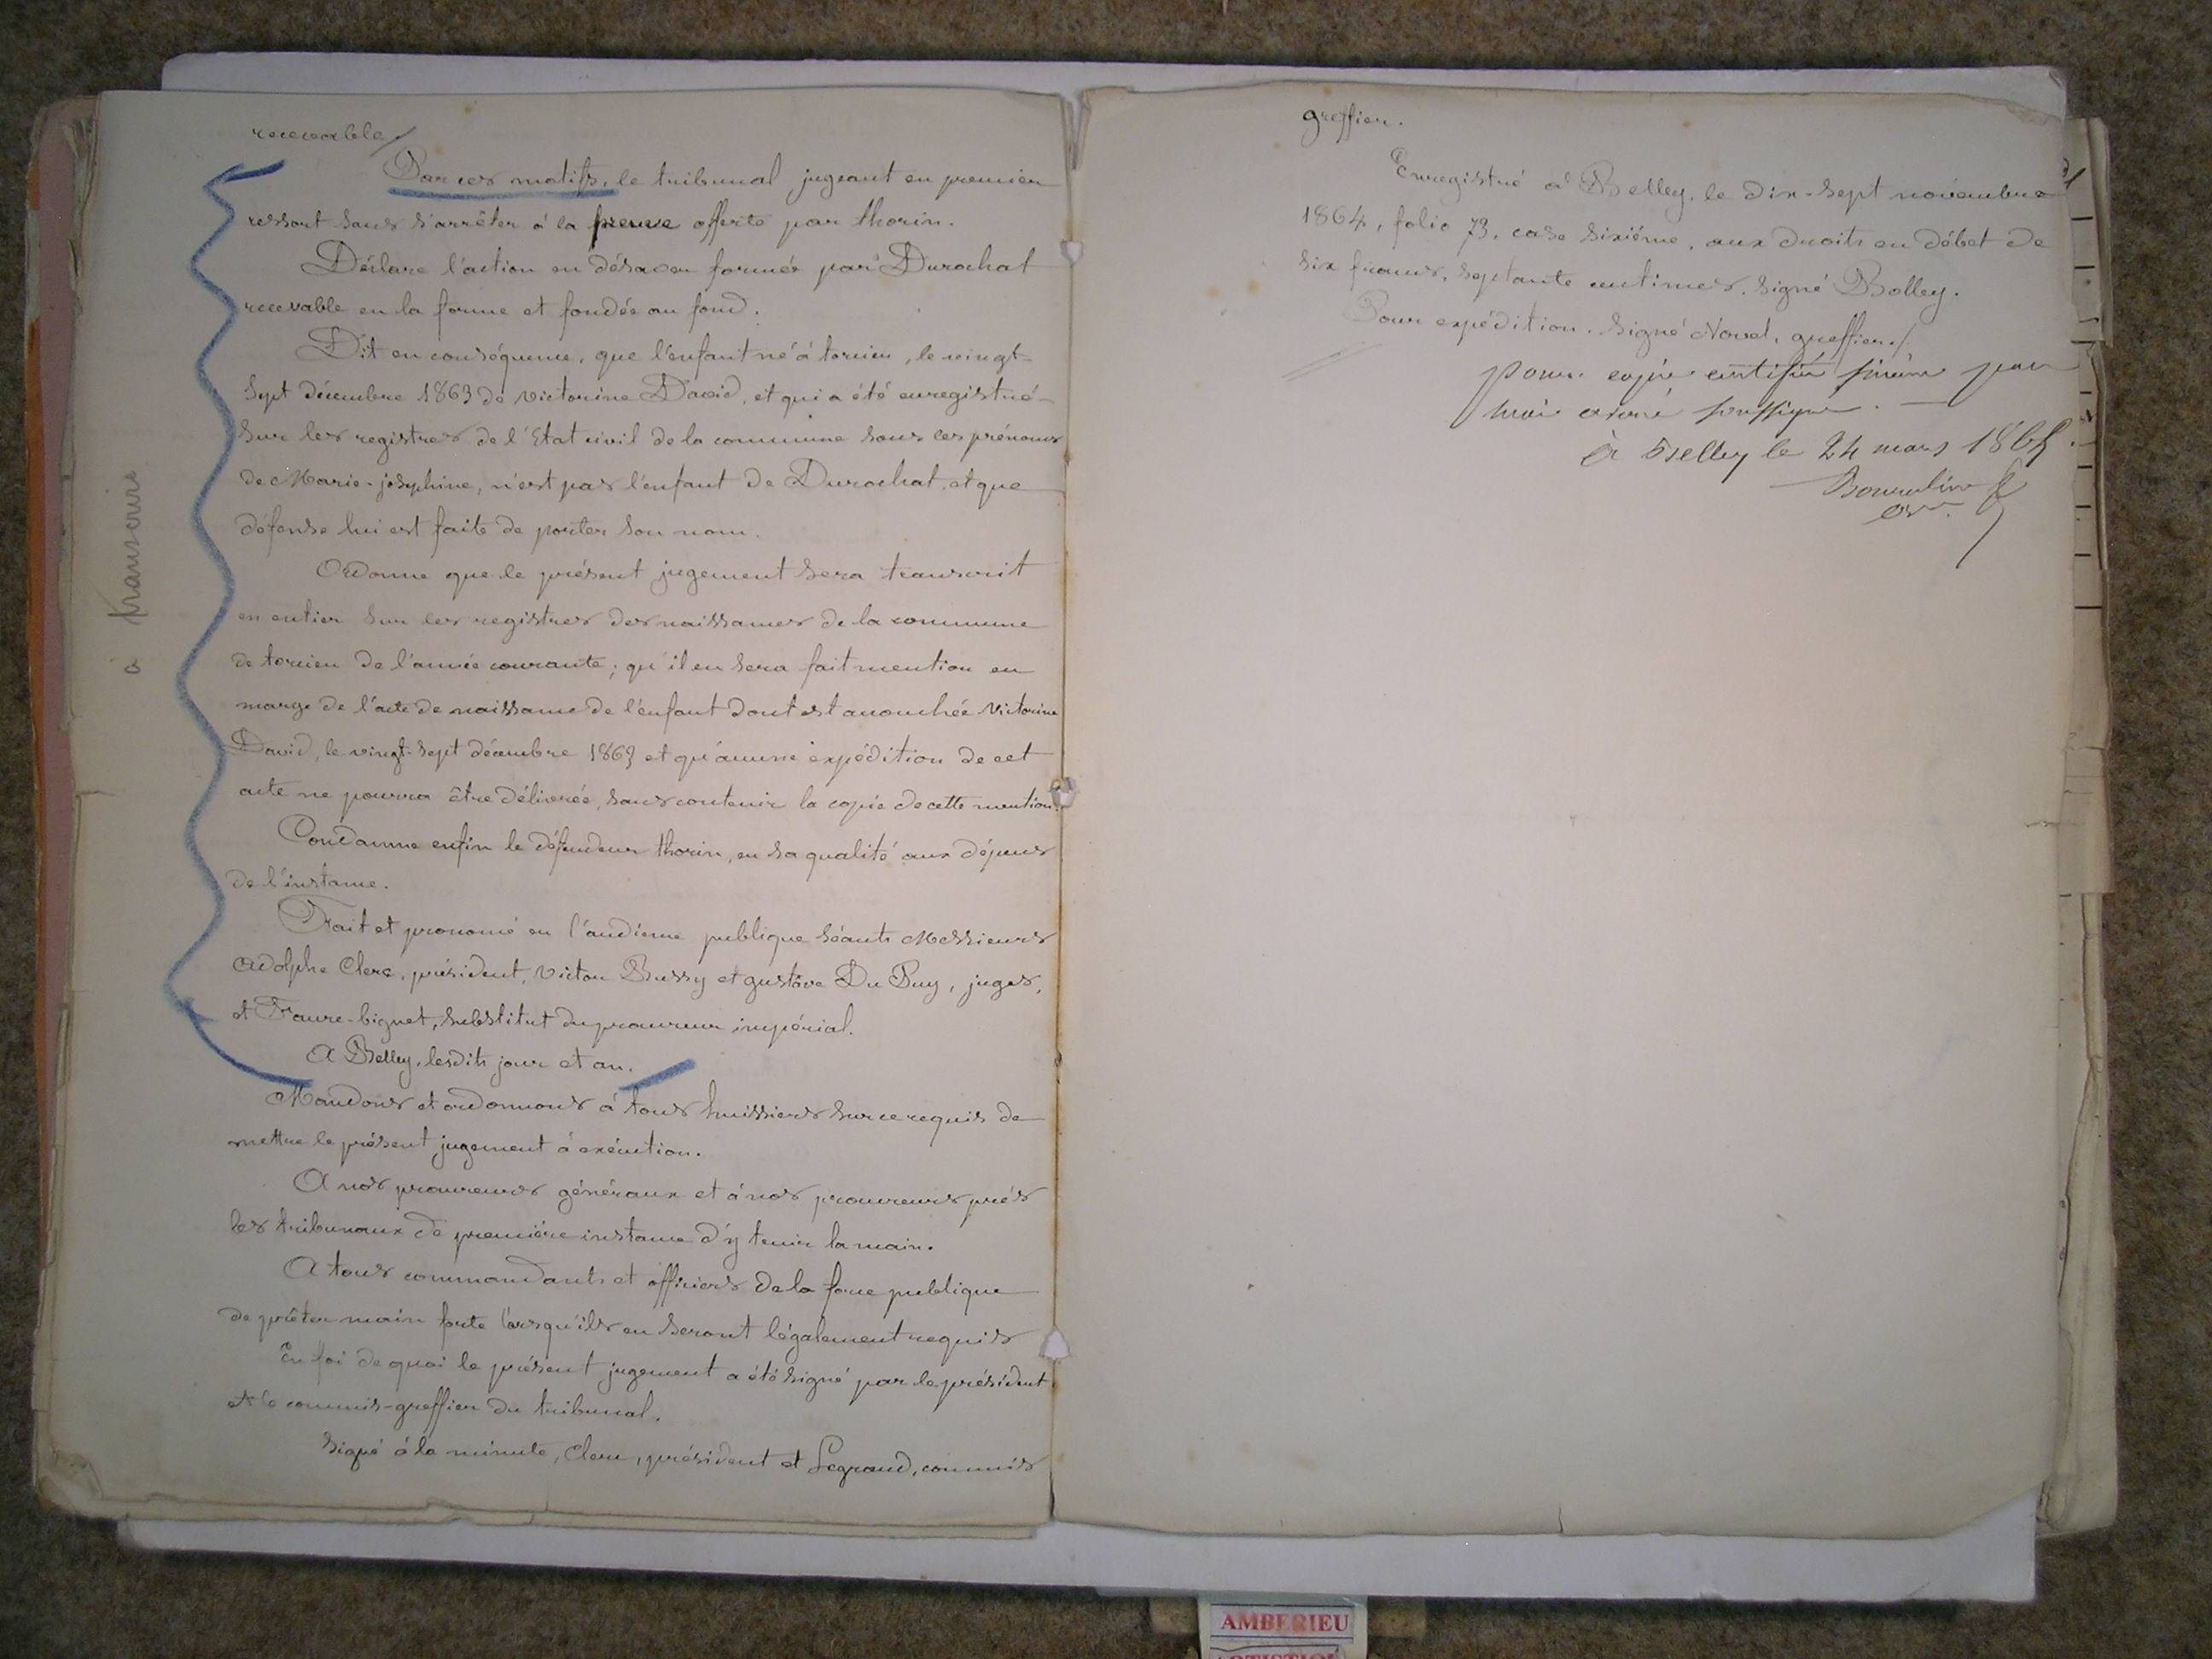 recevable
Par ces motifs, le tribunal jugeant en premier
ressort sans s'arrêter à la preuve offerte par thorin.
Déclare l'action en désaveu formée par Durochat
recevable en la forme et fondée au fond.
Dit en conséquence, que l'enfant né à torcieu, le vingt-
sept décembre 1863 de Victorine David, et qui a été enregistré
sur les registres de l'Etat civil de la commune sous les prénoms
de Marie-joséphine, n'est pas l'enfant de Durochat, et que
défense lui est faite de porter son nom.
Ordonne que le présent jugement sera transcrit
en entier sur les registres des naissances de la commune
de torcieu de l'année courante; qu'il en sera fait mention en
marge de l'acte de naissance de l'enfant dont est accouchée Victorine
David, le vingt-sept décembre 1863 et qu'aucune expédition de cet
acte ne pourra être délivrée, sans contenir la copie de cette mention.
Condamne enfin le défendeur thorin, en sa qualité aux dépens
de l'instance.
Fait et prononcé en l'audience publique séants Messieurs
Adolphe Clerc, président, Victor Bussy et gustave Du Puy, juges,
et Faure-biguet, substitut du procureur impérial.
A Belley, lesdits jour et an.
Mandons et ordonnons à tous huissiers sur ce requis de
mettre le présent jugement à exécution.
A nos procureurs généraux et à nos procureurs près
les tribunaux de première instance d'y tenir la main.
A tous commandants et officiers de la force publique
de prêter main forte lorsqu'ils en seront légalement requis
En foi de quoi le présent jugement a été signé par le président
et le commis-greffier du tribunal.
Signé à la minute, Clerc, président et Legrand, commis
à transcrire
greffier.
Enregistré à Belley, le dix-sept novembre
1864, folio 73, case sixième, aux droits en débet de
six francs, septante centimes. Signé Bolley.
Pour expédition. Signé Novel, greffier.
pour copie certifiée sincère par
moi avoué soussigné.
à Belley le 24 mars 1865.
AMBERIEU